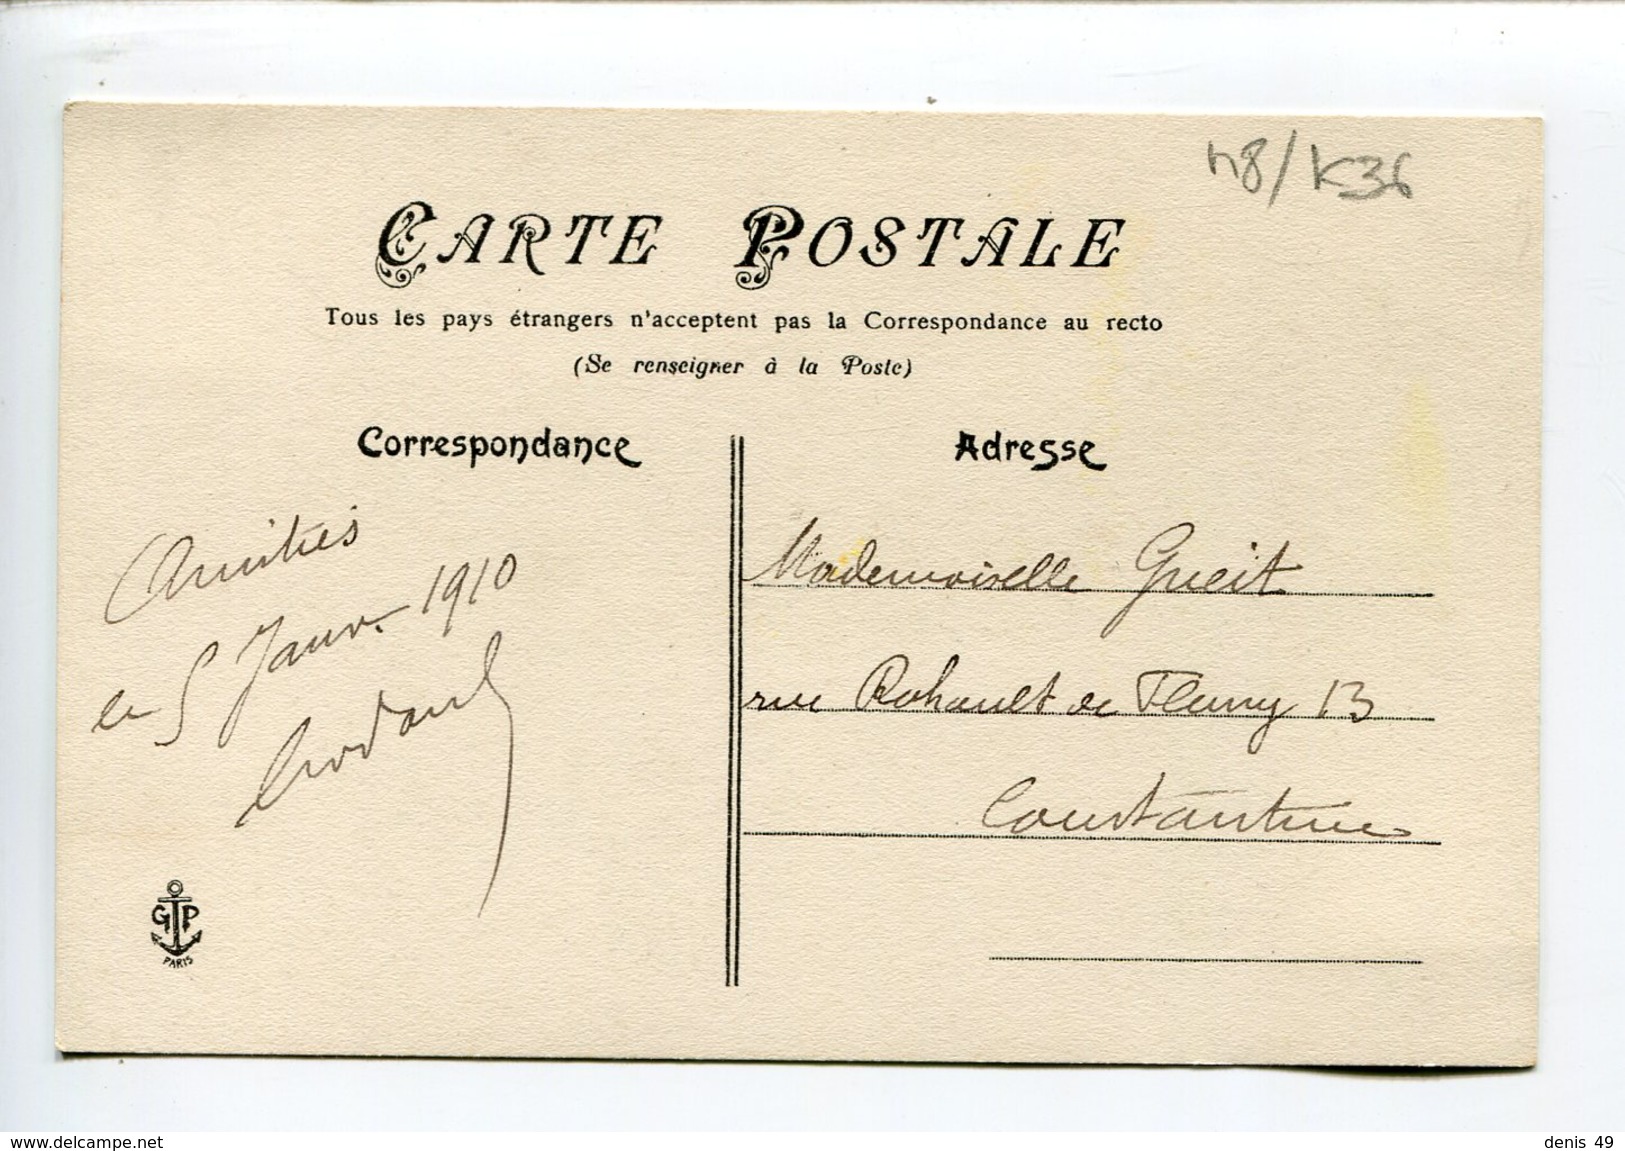 n8/K36
CARTE POSTALE
Tous les pays étrangers n'acceptent pas la Correspondance au recto
(Se renseigner à la Poste)
Correspondance
Adresse
Amitiés
le 5 Janv. 1910
Mademoiselle Gueit
rue Rohault de Fleury 13
Constantine
G P
PARIS
www.delcampe.net
denis 49